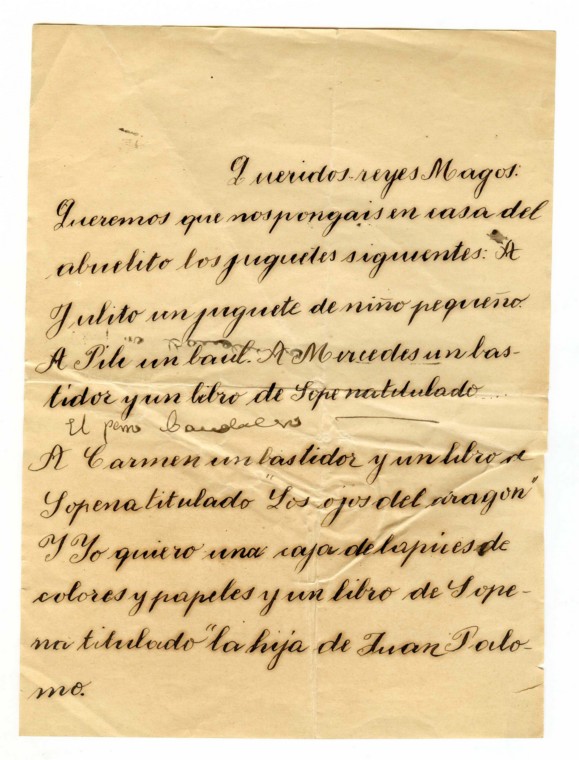 Queridos reyes Magos:
Queremos que nos pongais en casa del
abuelito los juguetes siguientes: A
Julito un juguete de niño pequeño.
A Pili un baúl. A Mercedes un bas-
tidor y un libro de Sopena titulado....
El perro
A Carmen un bastidor y un libro de
Sopena titulado "Los ojos del dragon"
Y Yo quiero una caja de lapices de
colores y papeles y un libro de Sope-
na titulado "la hija de Juan Palo-
mo.